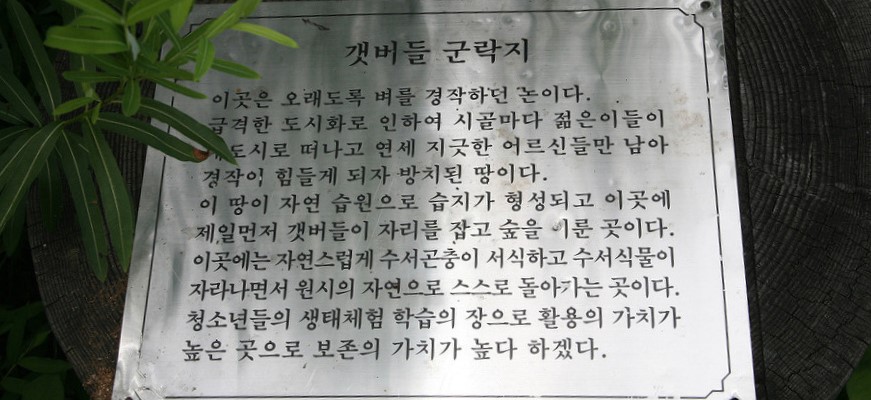 갯버들 군락지
이곳은 오래도록 벼를 경작하던 논이다.
급격한 도시화로 인하여 시골마다 젊은이들이
도시로 떠나고 연세 지긋한 어르신들만 남아
경작이 힘들게 되자 방치된 땅이다.
이 땅이 자연 습원으로 습지가 형성되고 이곳에
제일먼저 갯버들이 자리를 잡고 숲을 이룬 곳이다.
이곳에는 자연스럽게 수서곤충이 서식하고 수서식물이
자라나면서 원시의 자연으로 스스로 돌아가는 곳이다.
청소년들의 생태체험 학습의 장으로 활용의 가치가
높은 곳으로 보존의 가치가 높다 하겠다.